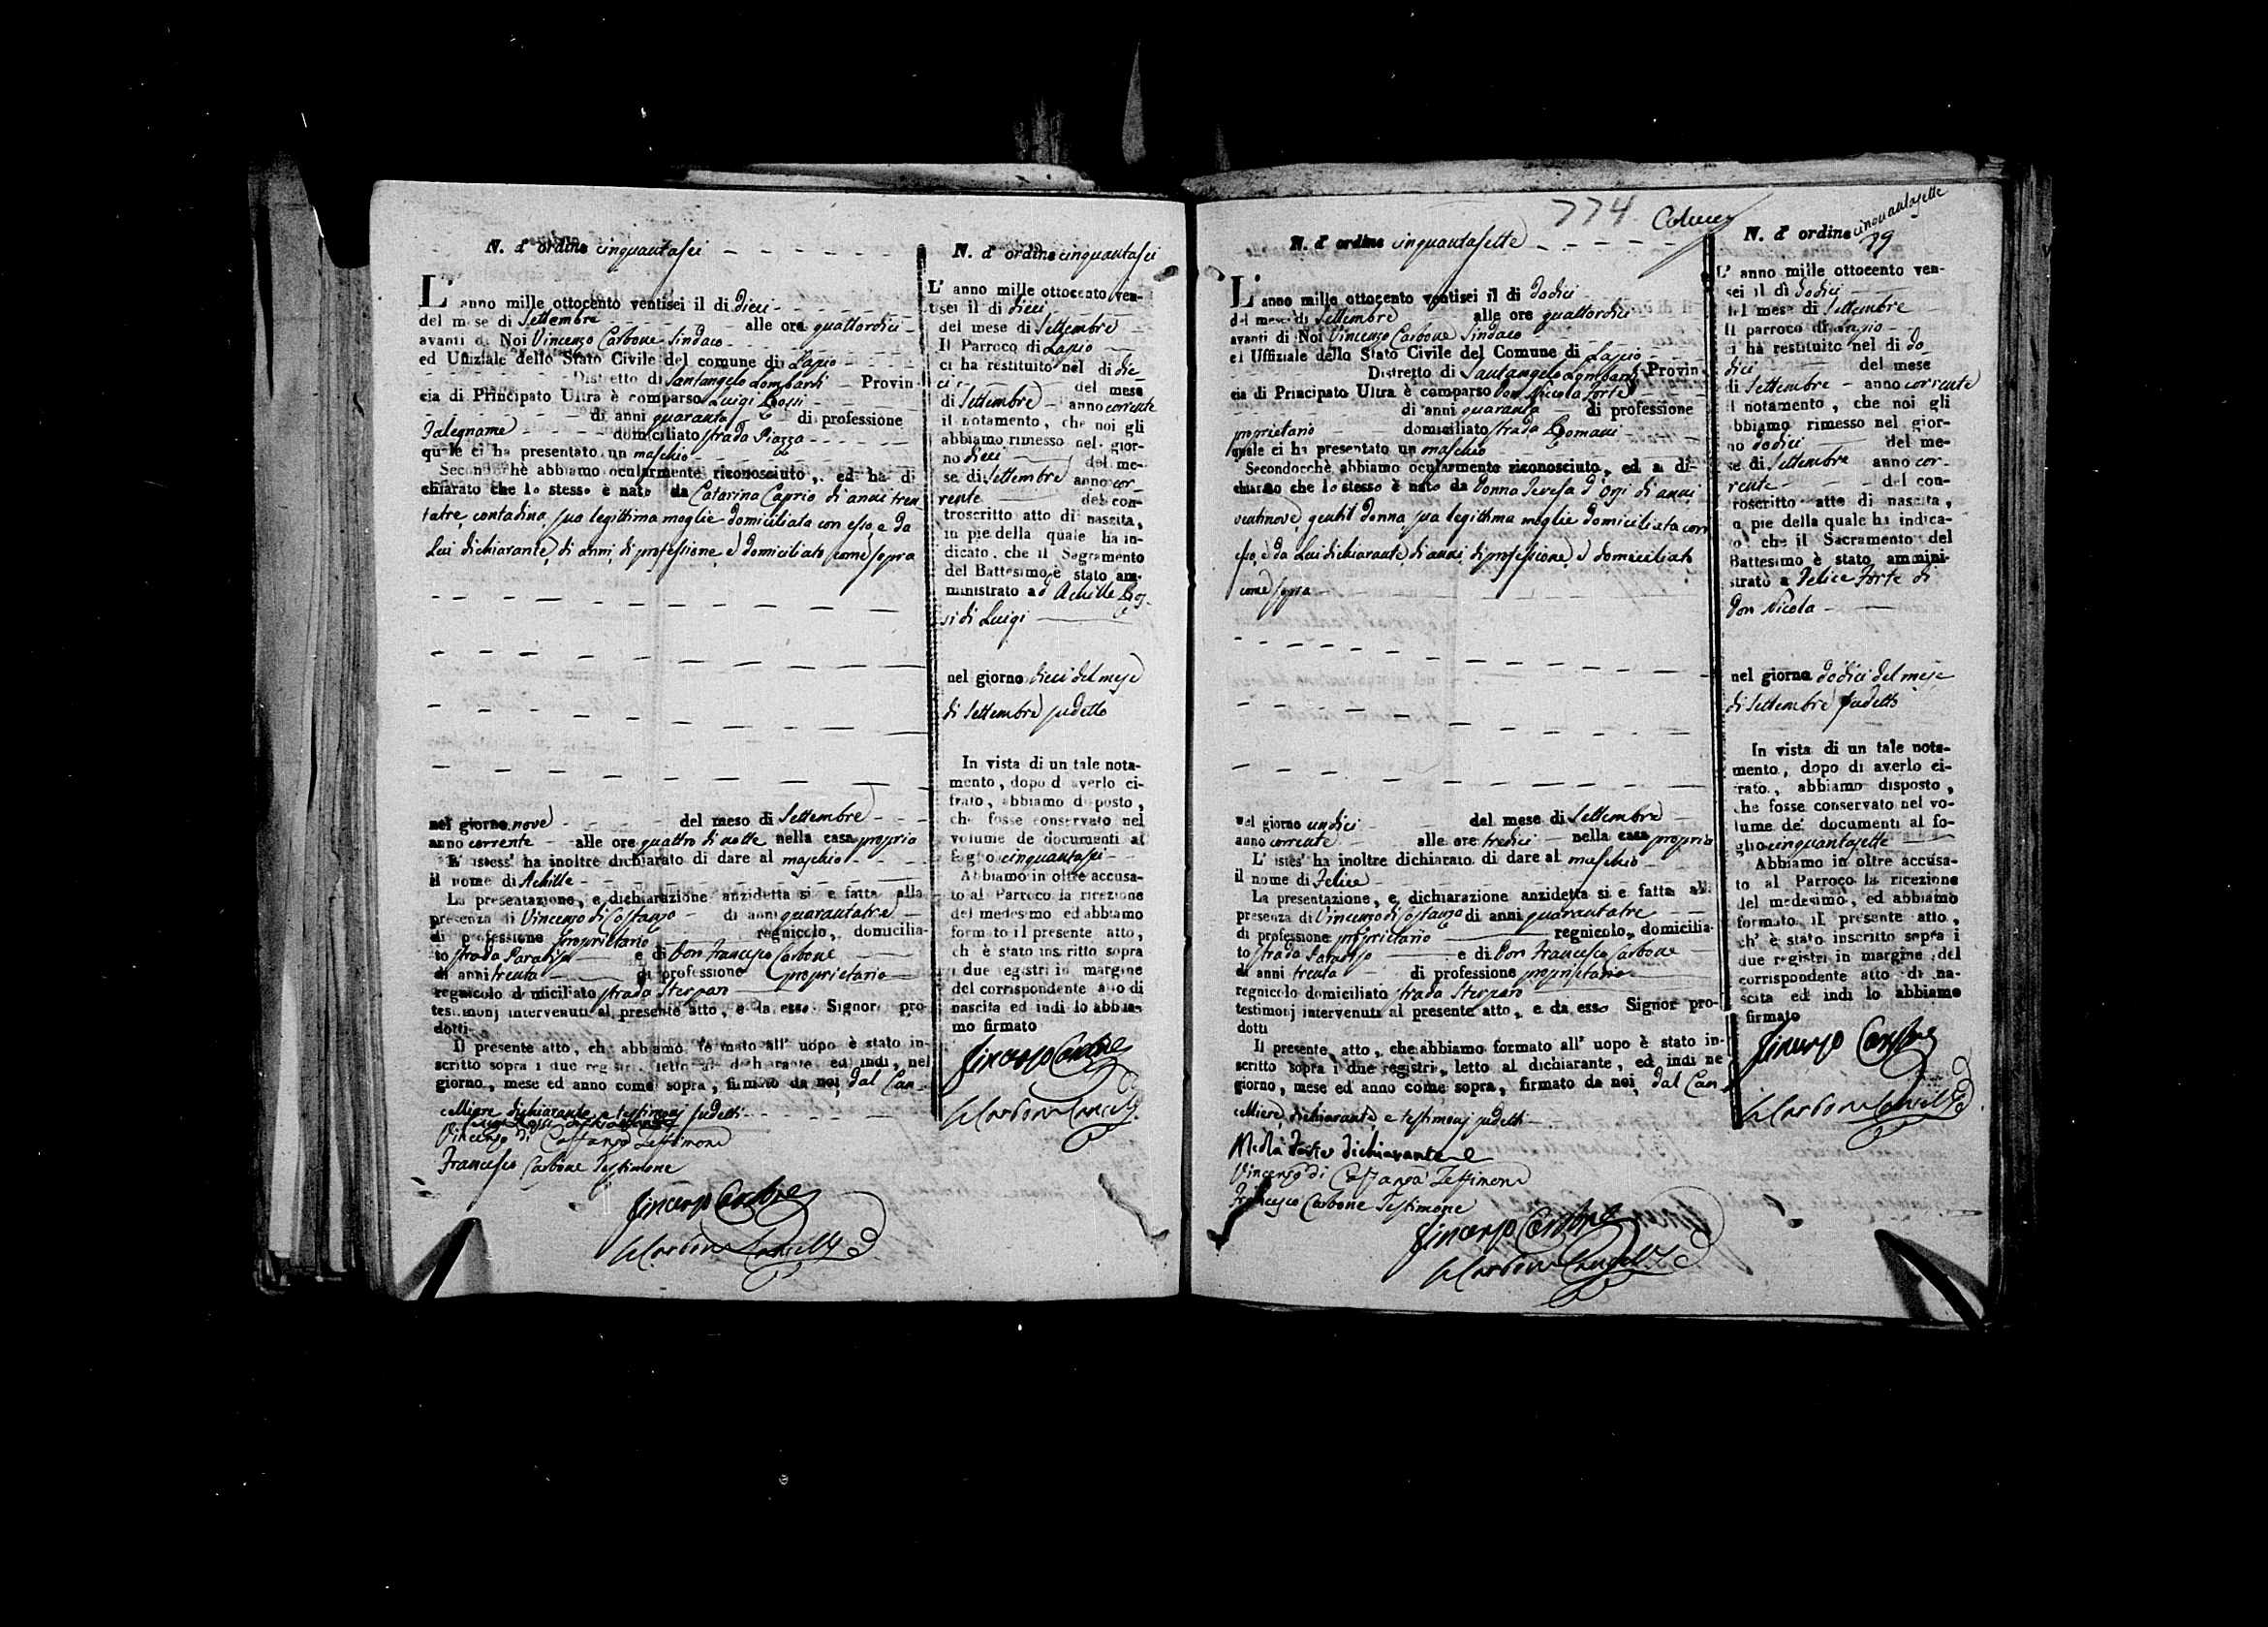 N. d' ordine cinquantasei
L' anno mille ottocento ventisei il di dieci
del mese di Settembre alle ore quattordici
avanti di Noi Vincenzo Carbone Sindaco
ed Uffiziale dello Stato Civile del comune di Lapio
Distretto di Santangelo Lombardi Provin-
cia di Principato Ultra è comparso Luigi Rossi
di anni quaranta di professione
Falegname domiciliato strada Piazza
quale ci ha presentato un maschio
Secondocchè abbiamo ocularmente riconosciuto, ed ha di
chiarato che lo stesso è nato da Catarina Caprio di anni tren
tatre contadina sua legittima moglie domiciliata con esso, e da
Lui dichiarante di anni, di professione, e domiciliato come sopra
nel giorno nove del mese di Settembre
anno corrente alle ore quattro di notte nella casa propria
L' istess' ha inoltre dichiarato di dare al maschio
il nome di Achille
La presentazione, e dichiarazione anzidetta si e fatta alla
presenza di Vincenzo di Costanzo di anni quarantatre
di professione proprietario regnicolo, domicilia-
to strada Paradiso e di Don Francesco Carbone
di anni trenta di professione proprietario
regnicolo domiciliato strada Sterparo
testimonj intervenuti al presente atto, e da esso Signor pro-
dotti
Il presente atto, che abbiamo formato all' uopo è stato in-
scritto sopra i due registri, letto al dichiarante ed indi, nel
giorno, mese ed anno come sopra, firmato da noi, dal Can-
celliere dichiarante e testimonj sudetti
Luigi Rossi dichiarante
Vincenzo di Costanzo Testimone
Francesco Carbone Testimone
Vincenzo Carbone
N. d' ordine cinquantasei
L' anno mille ottocento ven-
tisei il di dieci
del mese di Settembre
Il Parroco di Lapio
ci ha restituito nel di die-
ci del mese
di Settembre anno corrente
il notamento, che noi gli
abbiamo rimesso nel gior-
no dieci del me-
se di Settembre anno cor-
rente del con-
troscritto atto di nascita,
in pie della quale ha in-
dicato, che il Sagramento
del Battesimo è stato am-
ministrato ad Achille Ros-
si di Luigi
nel giorno dieci del mese
di Settembre sudetto
In vista di un tale nota-
mento, dopo d averlo ci-
frato, abbiamo disposto,
che fosse conservato nel
volume de documenti al
foglio cinquantasei
Abbiamo in oltre accusa-
to al Parroco la ricezione
del medesimo ed abbiamo
formato il presente atto,
ch è stato inscritto sopra
i due registri in margine
del corrispondente atto di
nascita ed indi lo abbia-
mo firmato
Vincenzo Carbone
774
N. d' ordine cinquantasette
L' anno mille ottocento ventisei il di dodici
del mese di Settembre alle ore quattordici
avanti di Noi Vincenzo Carbone Sindaco
ed Uffiziale dello Stato Civile del Comune di Lapio
Distretto di Santangelo Lombardi Provin
cia di Principato Ultra è comparso Don Nicola Forte
di anni quaranta di professione
proprietario domiciliato strada Romani
quale ci ha presentato un maschio
Secondocchè abbiamo ocularmente riconosciuto, ed a di-
chiarato che lo stesso è nato da Donna Teresa d'Ogi di anni
ventinove gentil donna sua legittima moglie domiciliata con
esso, e da Lui dichiarante di anni, di professione, e domiciliato
come sopra
nel giorno undici del mese di Settembre
anno corrente alle ore tredici nella casa propria
L' istes' ha inoltre dichiarato di dare al maschio
il nome di Felice
La presentazione, e dichiarazione anzidetta si e fatta all
presenza di Vincenzo di Costanzo di anni quarantatre
di professione proprietario regnicolo, domicilia-
to strada Paradiso e di Don Francesco Carbone
di anni trenta di professione proprietario
regnicolo domiciliato strada Sterparo
testimonj intervenuti al presente atto, e da esso Signor pro-
dotti
Il presente atto, che abbiamo formato all' uopo è stato in-
scritto sopra i due registri, letto al dichiarante, ed indi ne
giorno, mese ed anno come sopra, firmato da noi, dal Can
celliere, dichiarante, e testimonj sudetti
Nicola Forte dichiarante
Vincenzo di Costanzo Testimone
Francesco Carbone Testimone
Vincenzo Carbone
N. d' ordine cinquantasette
79
L' anno mille ottocento ven-
sei il dì dodici
del mese di Settembre
Il parroco di Lapio
ci ha restituito nel di do
dici del mese
di Settembre anno corrente
il notamento, che noi gli
abbiamo rimesso nel gior-
no dodici del me-
se di Settembre anno cor-
rente del con-
troscritto atto di nascita,
a pie della quale ha indica-
to che il Sacramento del
Battesimo è stato ammini-
strato a Felice Forte di
Don Nicola
nel giorno dodici del mese
di Settembre sudetto
In vista di un tale nota-
mento, dopo di averlo ci-
frato, abbiamo disposto,
che fosse conservato nel vo-
lume de' documenti al fo-
glio cinquantasette
Abbiamo in oltre accusa-
to al Parroco la ricezione
del medesimo, ed abbiamo
formato il presente atto,
ch' è stato inscritto sopra i
due registri in margine del
corrispondente atto di na-
scita ed indi lo abbiamo
firmato
Vincenzo Carbone